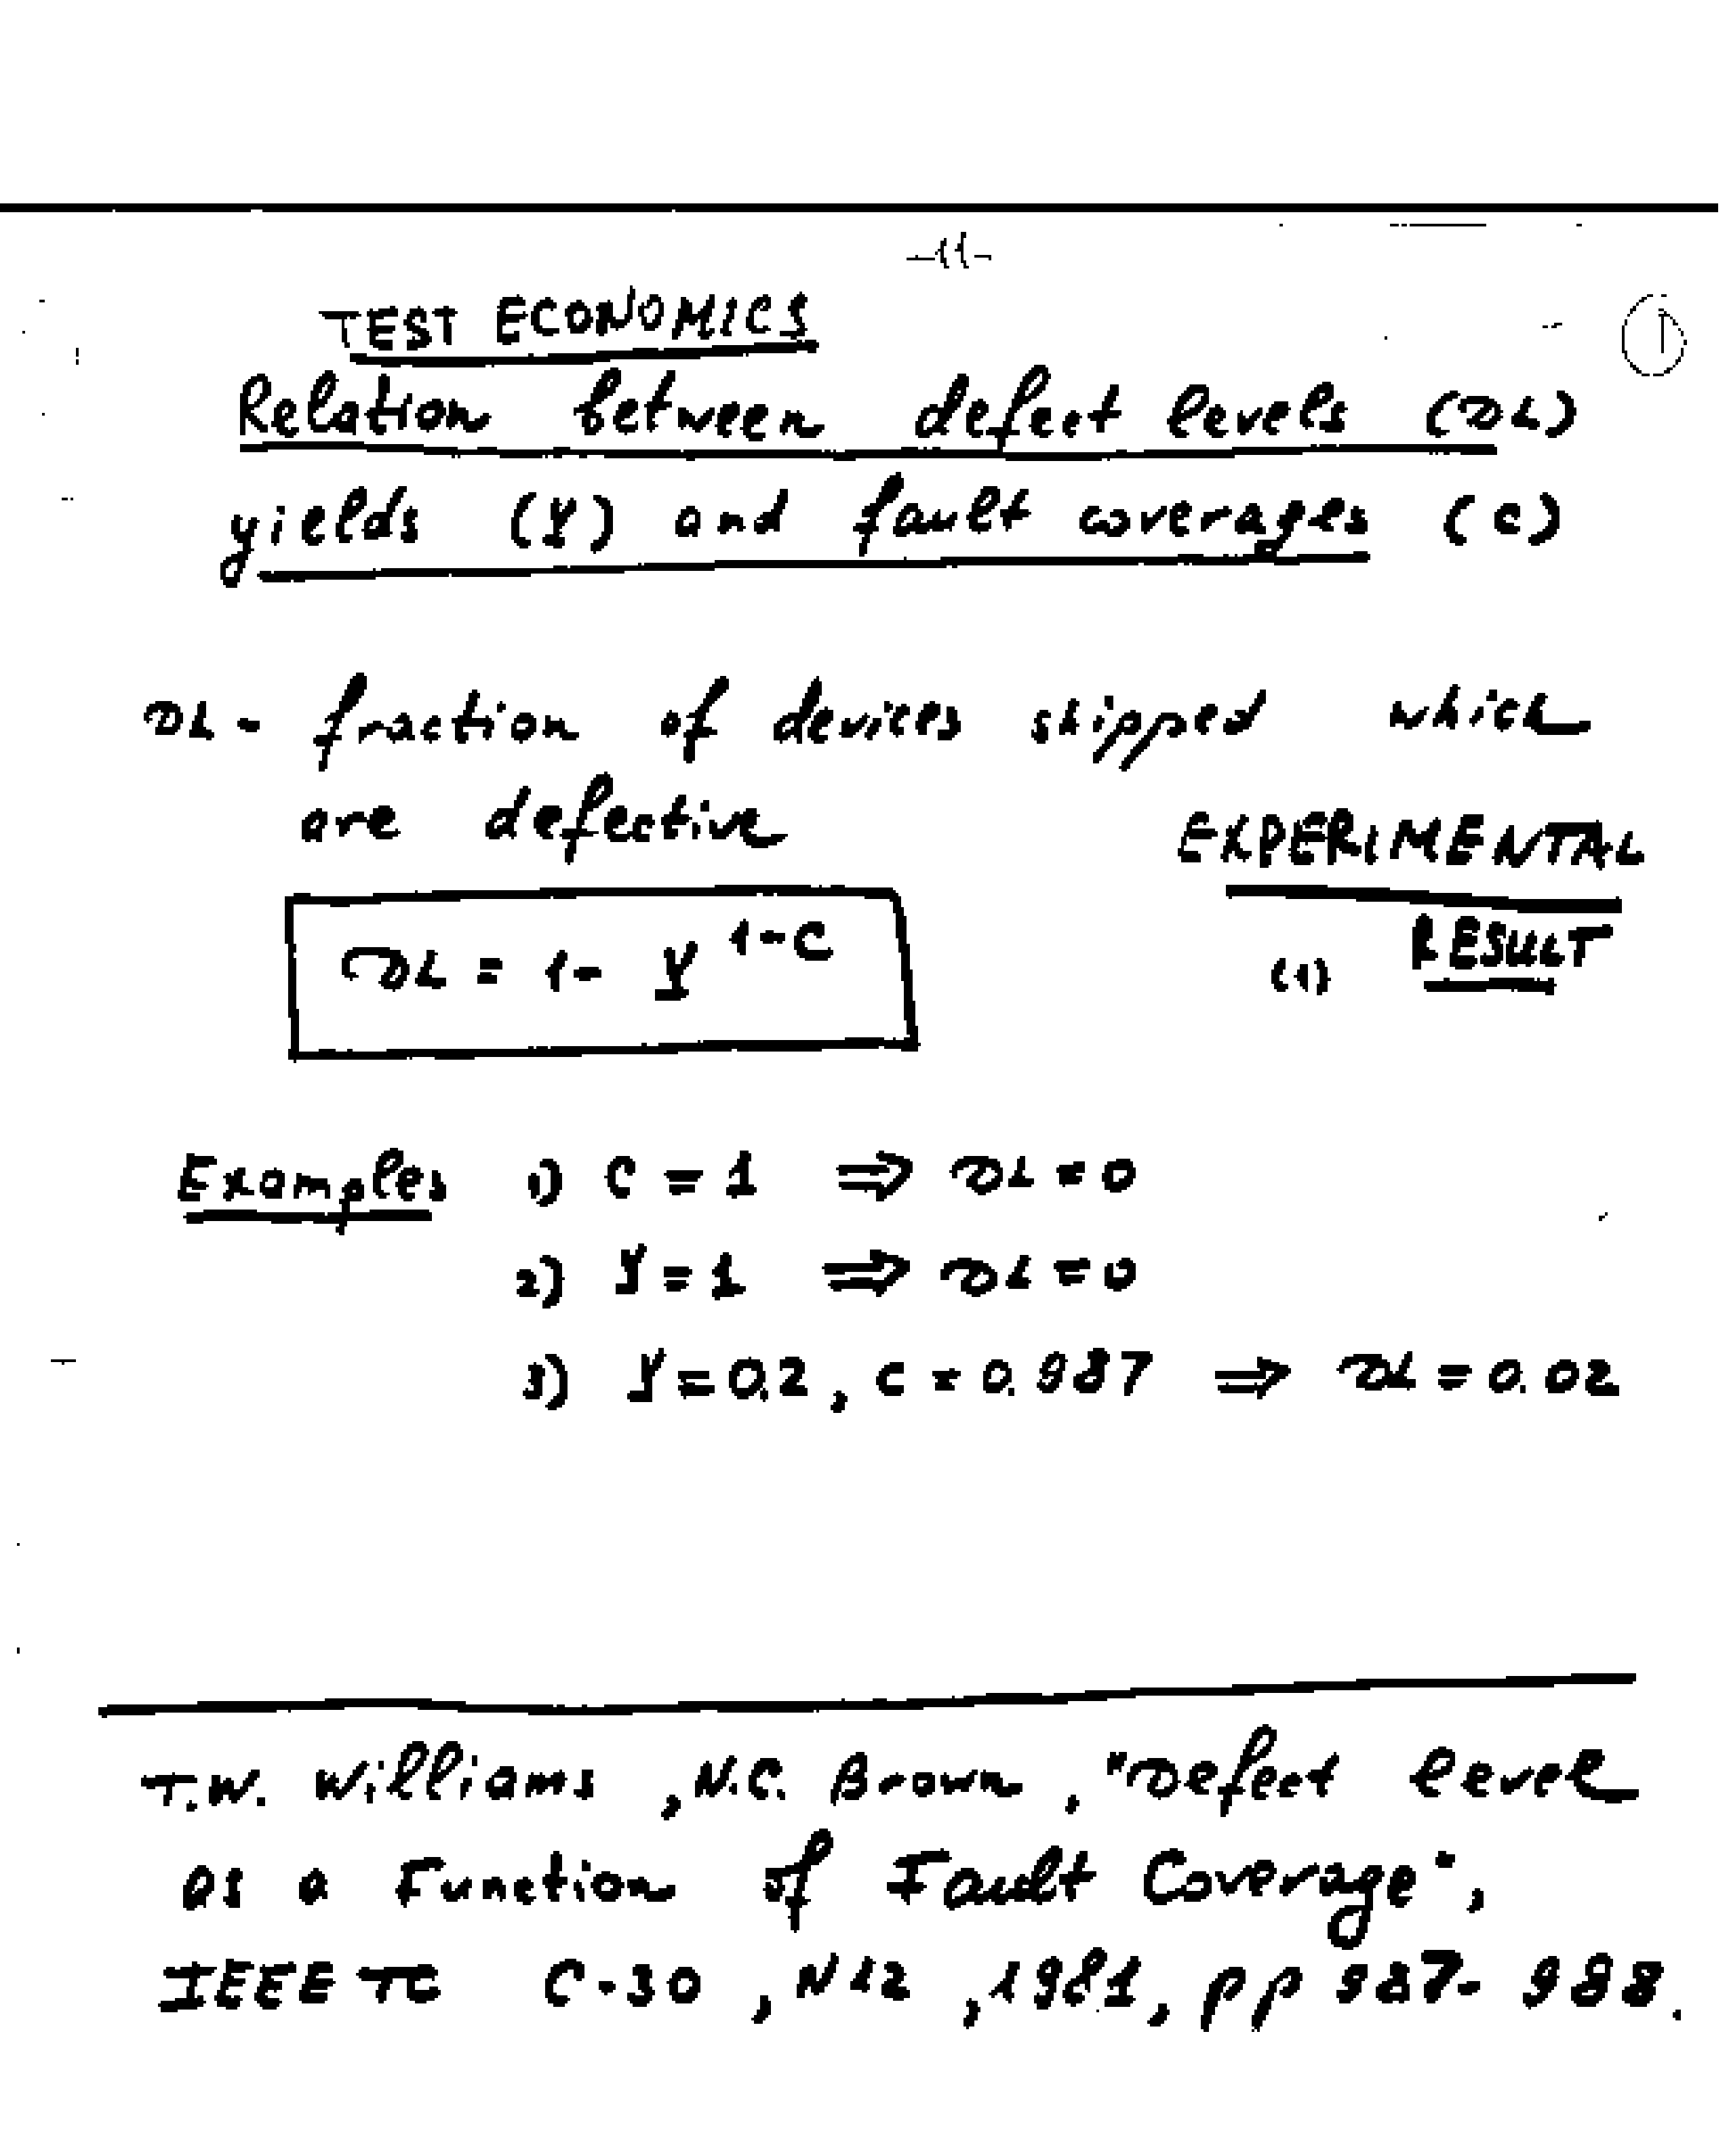 -11-
1
TEST ECONOMICS
Relation between defect levels (DL)
yields (Y) and fault coverages (C)
DL - fraction of devices shipped which
are defective
EXPERIMENTAL
DL = 1 - Y^{1-C}
(1) RESULT
Examples 1) C = 1 ⇒ DL = 0
2) Y = 1 ⇒ DL = 0
3) Y = 0.2, C = 0.987 ⇒ DL = 0.02
T.W. Williams, N.C. Brown, "Defect level
as a Function of Fault Coverage",
IEEE TC C-30, N12, 1981, pp 987-988.